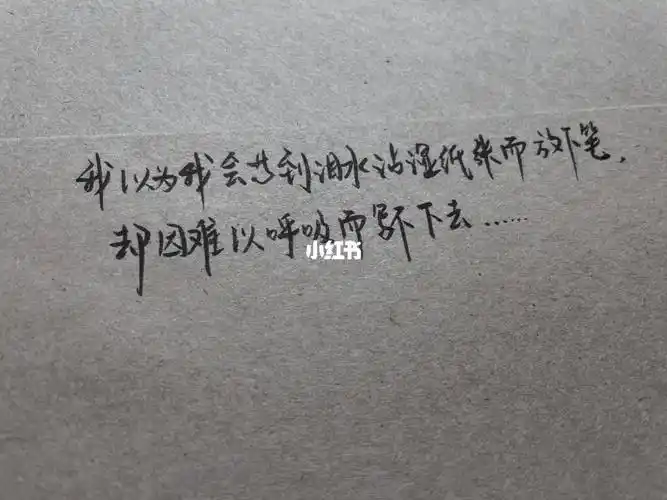 我以为我会哭到泪水沾湿纸张而放下笔，
却因难以呼吸而写不下去……
小红书